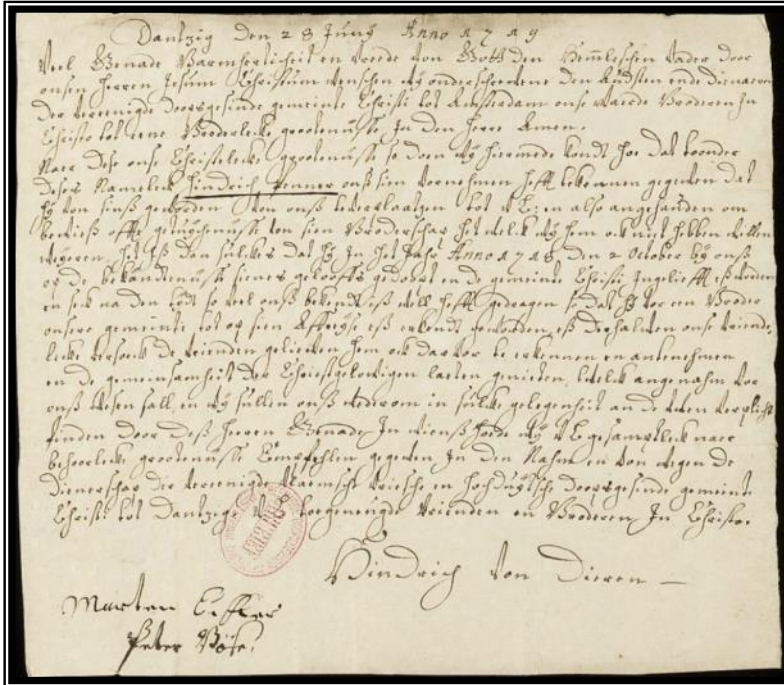 Dantzig den 28 Juny Anno 1719
Veel Genade Barmherticheit en Vreede von Gott den Hemelschen Vader door
onsen Herren Jesum Christum wenschen wy onderschreevene den Eudsten ende Dienaeren
der vereenigde Doopsgesinde gemeinte Christi tot Amsterdam onse waerde Broderen In
Christo tot eene Broderlecke grootenusse In den Heere Amen.
Naer dese onse Christelecke grootenusse so doen wy hiermede kondt hoe dat toonder
deses Namelick Hindrich Penner onß sien vornehmen hefft bekennen gegeven dat
hy von sinß geworden von onß te verlaaten tot U E: en also angehinden om
bewieß offte getuychenusse von sien Broderschap het welk wy hem ock niet hebben willen
weygeren, hit iß dan sulckes dat hy In het Jahr Anno 1718 den 2 October by onß
op de bekandtenusse sienes geloofs gedoopt en de gemeinte Christi Ingelieft eß worden
en sick na den tydt so veel onß bekendt iß well hefft gedragen so dat hy vor een Broder
onsere gemeinte tot op sien Affreyse eß erkendt geworden, eß derhalven onse vriende-
lecke versoeck de vrienden gelieven hem ock darvor te erkennen en antenehmen
en de gemeinsamheit der Christgelovigen laeten genieten, twelck angenahm vor
onß wesen sall, en wy sullen onß wederom in sulcke gelegenheit an de uwen verplicht
finden door deß Herren Genade, In wienß hoede wy U E gesamptleck naer
behoorlecke grootenusse Empfehlen gegeven In den Nahm en von wegen de
Dienerschap der vereenigde Vlaemsche Vriesche en Hochduytsche Doopsgesinde gemeinte
Christi tot Dantzig U E toegeneugde Vrienden en Broderen In Christo.
Hindrich von Dieren
Marten
Peter